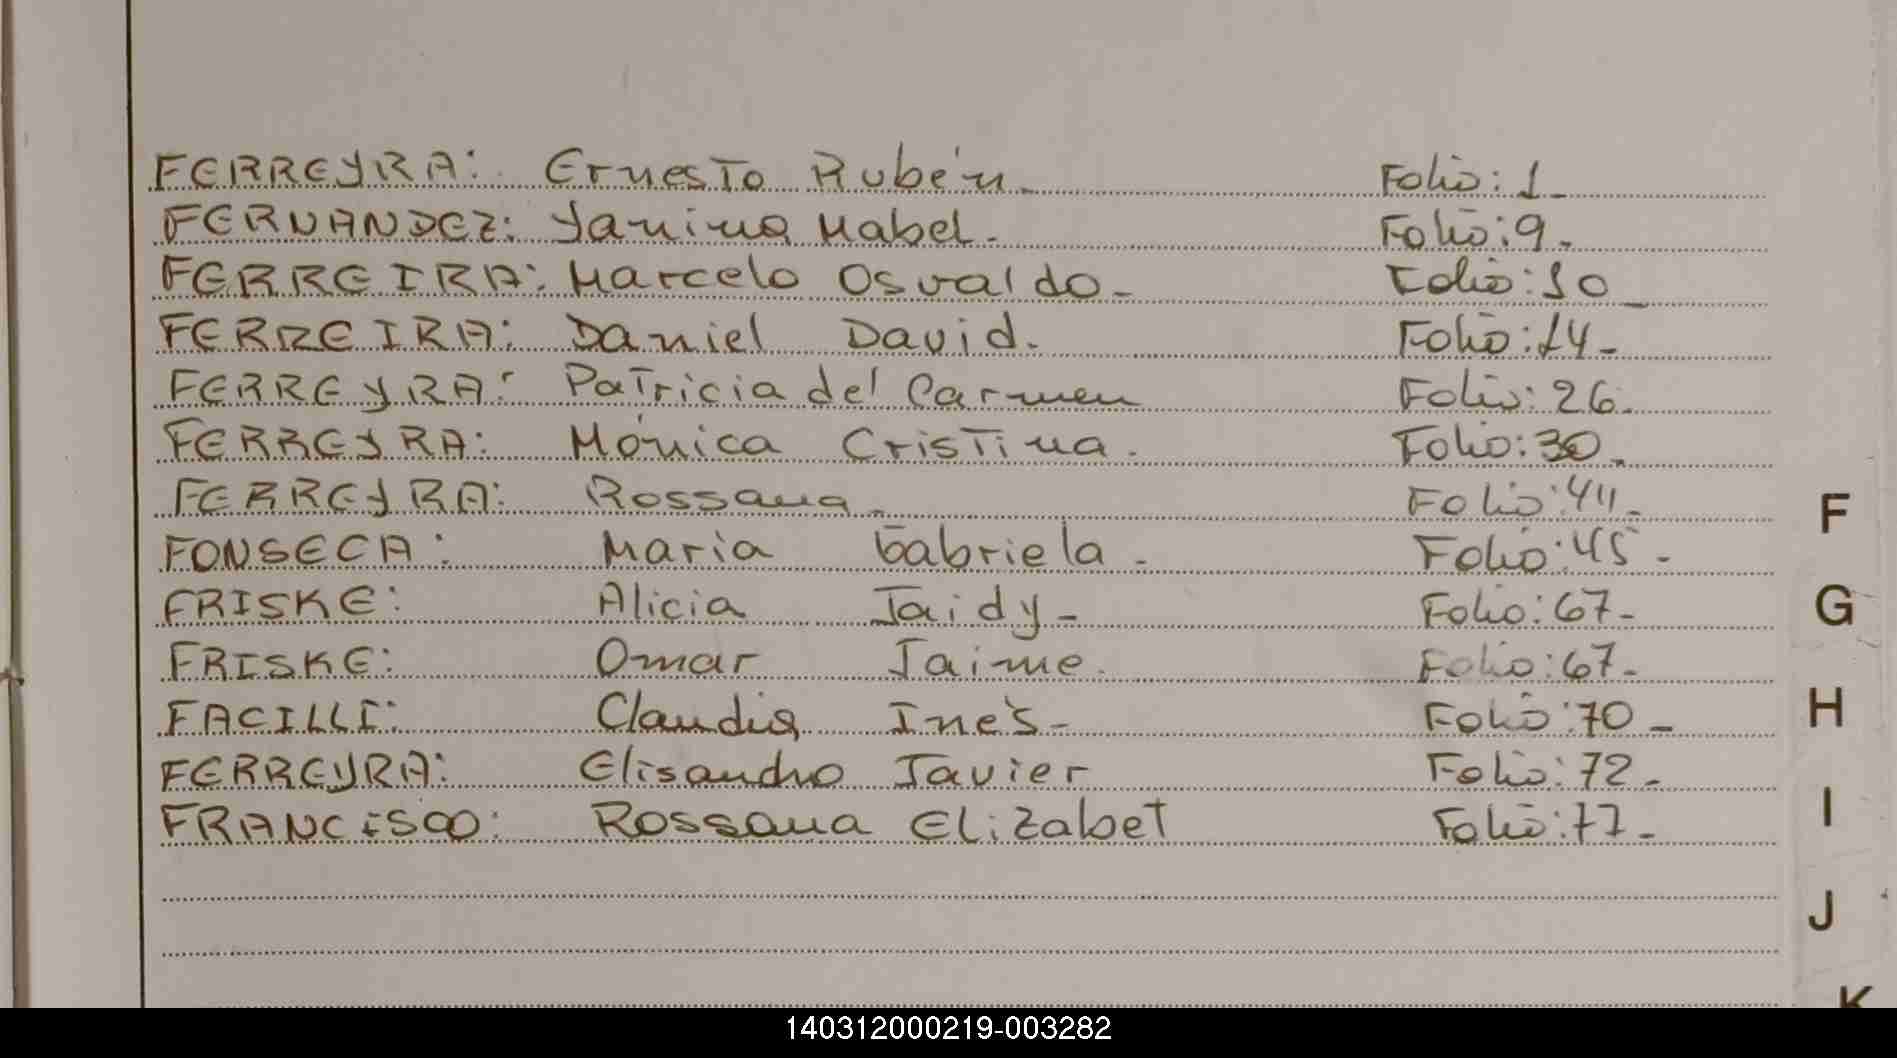 FERREYRA: Ernesto Rubén. Folio: 1_
FERNANDEZ: Yanina Mabel. Folio: 9.
FERREIRA: Marcelo Osvaldo._ Folio: 10_
FERREIRA: Daniel David. Folio: 14_
FERREYRA: Patricia del Carmen Folio: 26.
FERREYRA: Mónica Cristina. Folio: 30.
FERREYRA: Rossana. Folio: 44_
FONSECA: Maria Gabriela. Folio: 45_
FRISKE: Alicia Jaidy_ Folio: 67_
FRISKE: Omar Jaime. Folio: 67_
FACILLI: Claudia Inés_ Folio: 70_
FERREYRA: Elisandro Javier Folio: 72_
FRANCISCO: Rossana Elizabet Folio: 77_
F
G
H
I
J
K
140312000219-003282